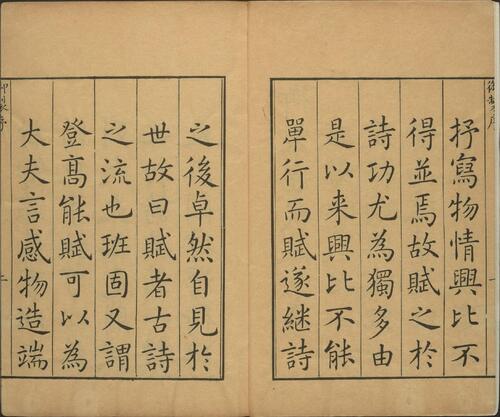 抒寫物情興比不
得並焉故賦之於
詩功尤為獨多由
是以来興比不能
單行而賦遂継詩
之後卓然自見於
世故曰賦者古詩
之流也班固又謂
登髙能賦可以為
大夫言感物造端